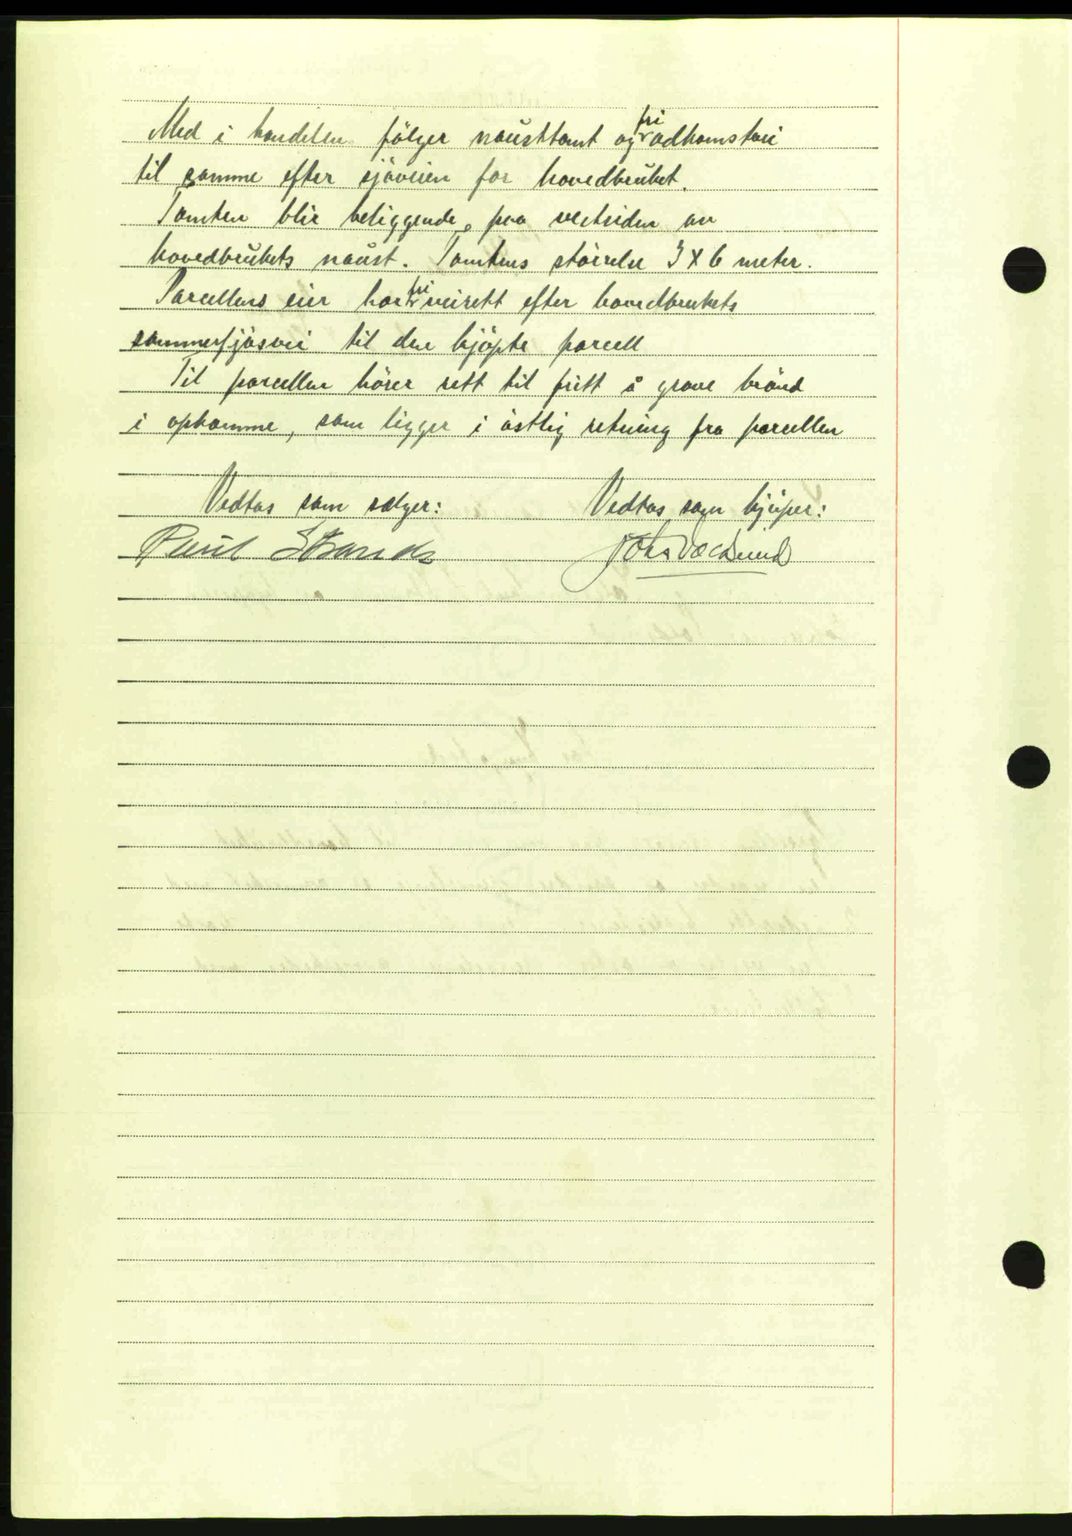 Med i handelen følger nausttomt og fri adkomstvei
til samme efter sjøveien for hovedbruket.
Tomten blir beliggende, paa vestsiden av
hovedbrukets naust. Tomtens størrelse 3 x 6 meter.
Parcellens eier har fri veirett efter hovedbrukets
sommerfjøsvei til den kjøpte parcell
Til parcellen hører rett til fritt å grave brønd
i opkomme, som ligger i østlig retning fra parcellen
Vedtas som selger: Vedtas som kjøper:
Paul Strande John